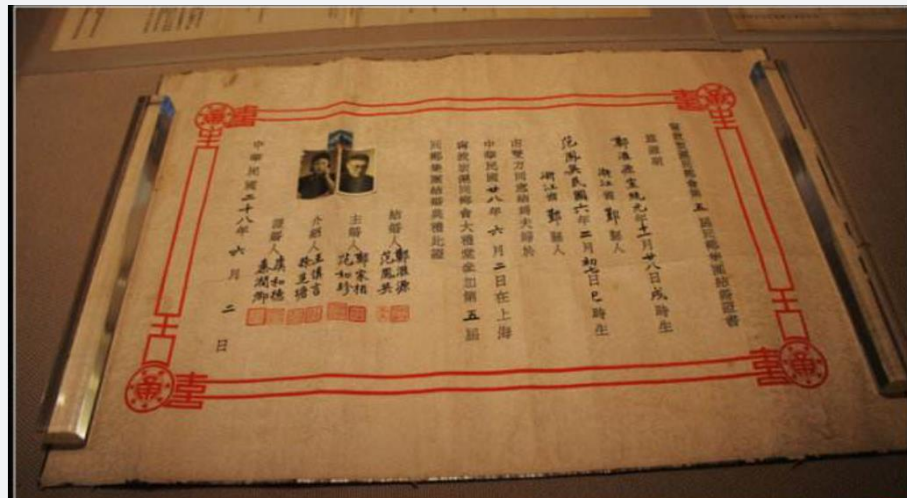 寗波旅滬同鄉會第五屆同鄉集團結婚證書
玆證明
鄭淮源宣統元年十一月廿八日戌時生
浙江省鄞縣人
范鳳英民國六年二月初七日巳時生
浙江省鄞縣人
由雙方同意結為夫婦於
中華民國廿八年六月二日在上海
寗波旅滬同鄉會大禮堂參加第五屆
同鄉集團結婚典禮此證
結婚人鄭淮源
范鳳英
主婚人鄭家相
范初珍
介紹人王慎言
證婚人虞和德
中華民國二十八年六月二日